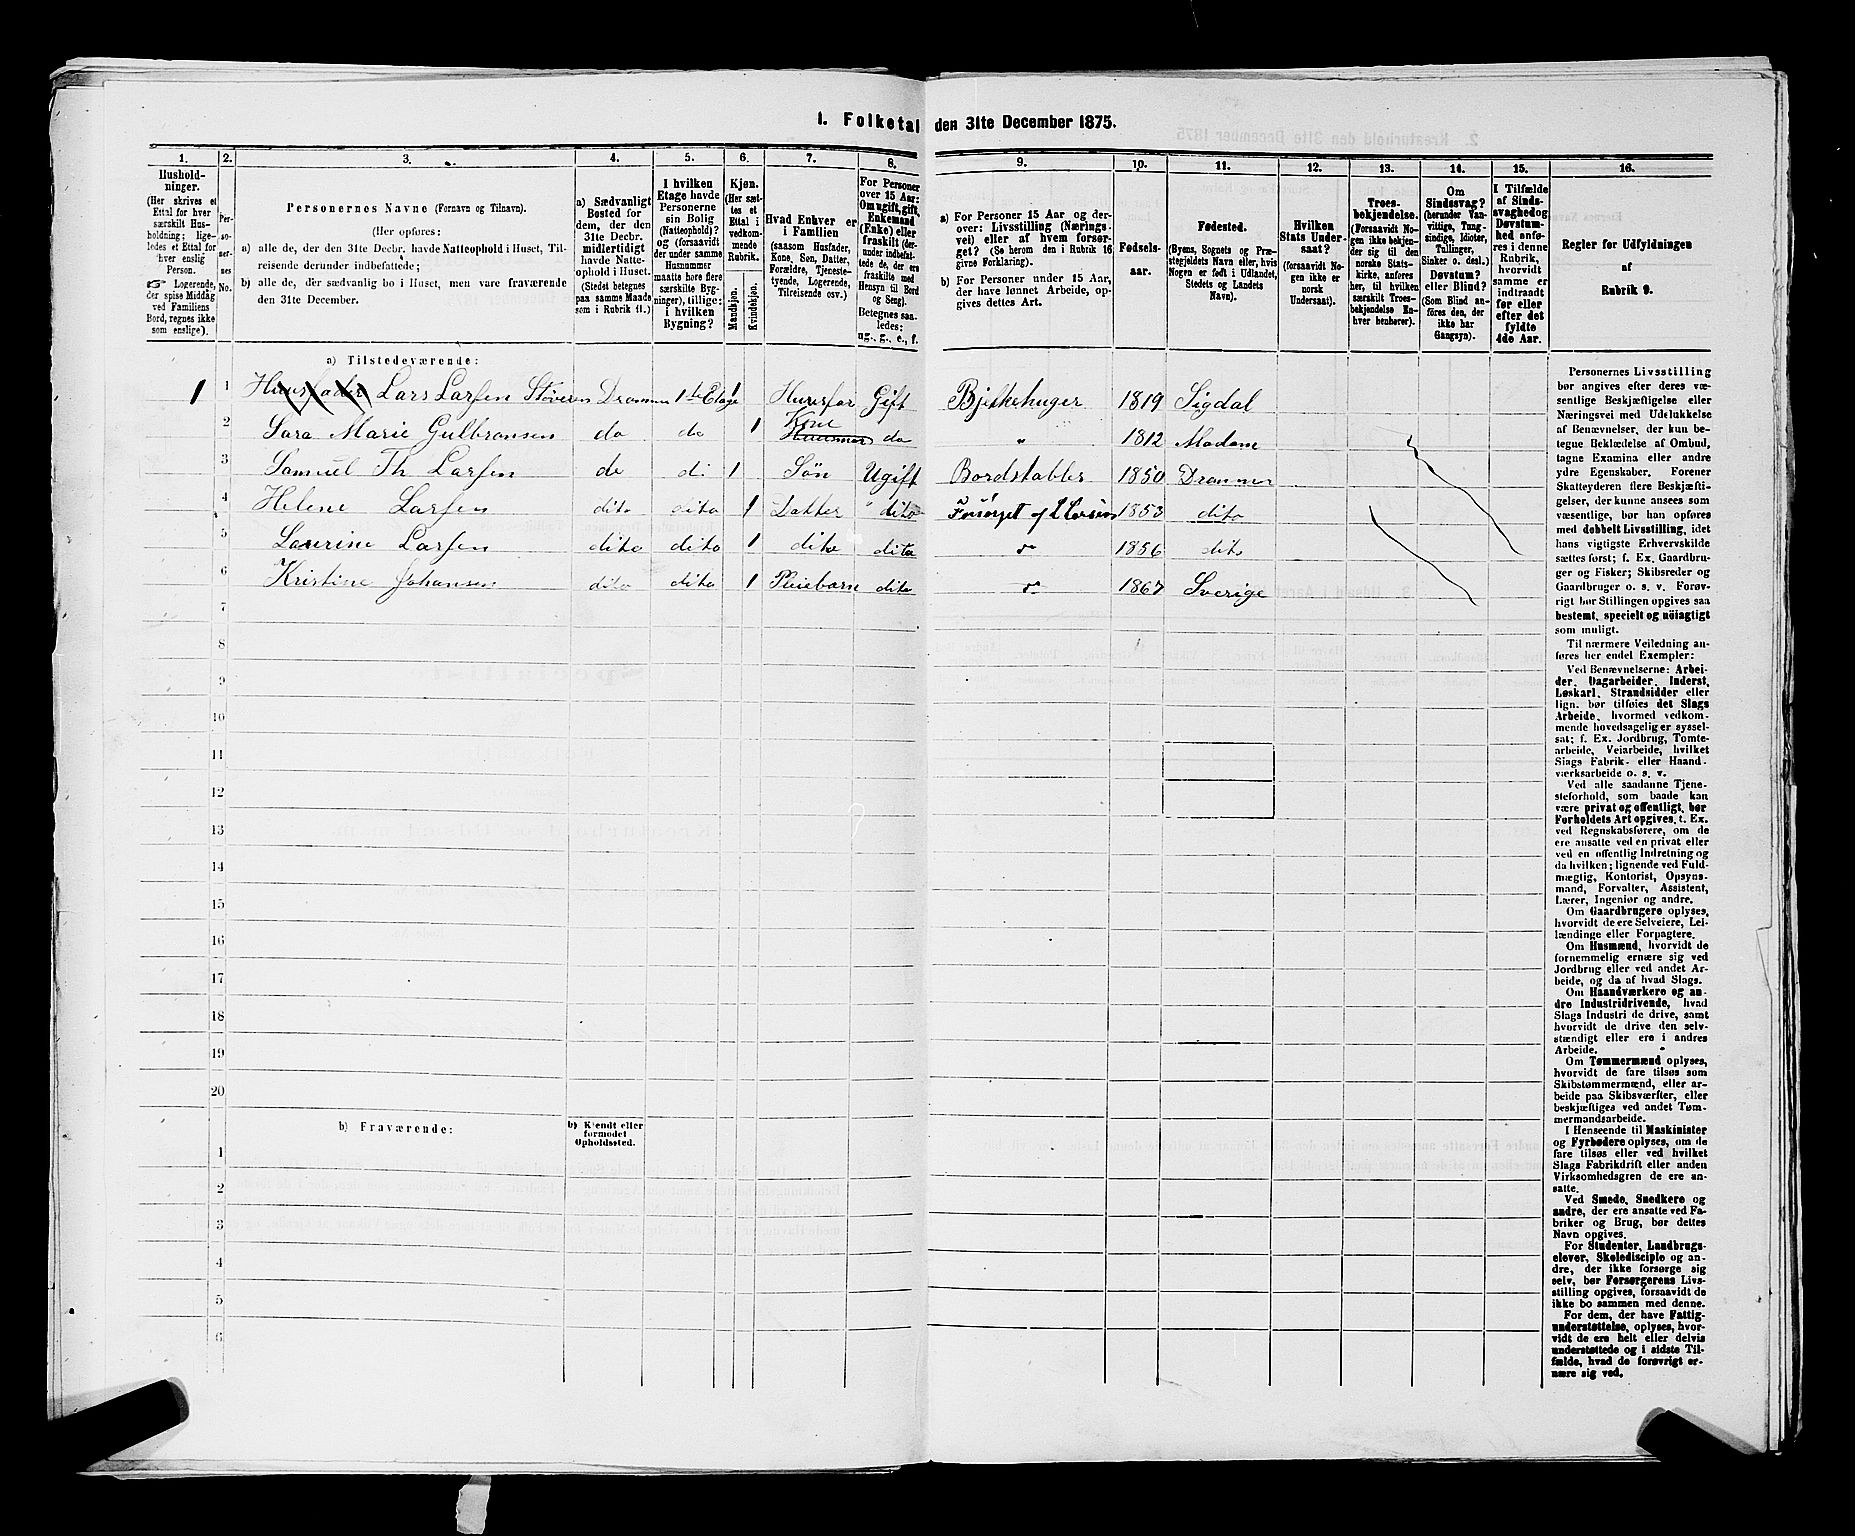 1. Folketal den 31te December 1875.
1. 2. 3. 4. 5. 6. 7. 8. 9. 10. 11. 12. 13. 14. 15. 16.
Hushold-
ninger.
(Her skrives et
Ettal for hver
særskilt Hus-
holdning; lige-
ledes et Ettal for
hver enslig
Person.
☞ Logerende,
der spise Middag
ved Familiens
Bord, regnes ikke
som enslige).
Per-
so-
ner-
nes
No.
Personernes Navne (Fornavn og Tilnavn).
(Her opføres:
a) alle de, der den 31te Decbr. havde Natteophold i Huset, Til-
reisende derunder indbefattede;
b) alle de, der sædvanlig bo i Huset, men vare fraværende
den 31te December.
a) Sædvanligt
Bosted for
dem, der den
31te Decbr.
midlertidigt
havde Natte-
ophold i Huset.
(Stedet betegnes
paa samme Maade
som i Rubrik 11.)
I hvilken
Etage havde
Personerne
sin Bolig
(Natteophold)?
og (forsaavidt
der under samme
Husnummer
særskilte Byg-
ninger), tillige:
i hvilken
Bygning?
Kjøn.
(Her sæt-
tes et
Ettal i
vedkom-
mende
Rubrik.
Mandkjøn.
Kvindekjøn.
Hvad Enhver er
i Familien
(saasom Husfader,
Kone, Søn, Datter,
Forældre, Tjeneste-
tyende, Logerende,
Tilreisende osv.)
For Personer
over 15 Aar:
Om ugift, gift,
Enkemand
(Enke) eller
fraskilt (der-
under indbefat-
tede de, der ere
fraskilte med
Hensyn til Bord
og Seng).
Betegnes saa-
ledes:
ug., g., e., f.
a) For Personer 15 Aar og der-
over: Livsstilling (Nærings-
vei) eller af hvem forsør-
get? (Se herom den i Rubrik 16
givne Forklaring).
b) For Personer under 15 Aar,
der have lønnet Arbeide, op-
gives dettes Art.
Fødsels-
aar.
Fødested.
(Byens, Sognets og Præ-
stegjeldets Navn eller, hvis
Nogen er født i Udlandet,
Stedets og Landets
Navn).
Hvilken
Stats Under-
saat?
(forsaavidt No-
gen ikke er
norsk
Undersaat).
Troes-
bekjendelse.
(Forsaavidt No-
gen ikke bekjen-
der sig til den
norske Stats-
kirke, anføres
her, til hvilken
særskilt Troes-
bekjendelse En-
hver henhører).
Om
Sindssvag?
(herunder Van-
vittige, Tung-
sindige, Idioter,
Tullinger,
Sinker o. desl.)
Døvstum?
eller Blind?
(Som Blind an-
føres den, der
ikke har
Gangsyn).
I Tilfælde
af Sinds-
svaghed og
Døvstum-
hed anfø-
res i denne
Rubrik,
hvorvidt
samme er
indtraadt
før eller
efter det
fyldte
4de Aar.
Regler for Udfyldningen
af
Rubrik 9.
a) Tilstedeværende:
1 1 Lars Larsen Drammen 1ste Etage 1 Huusfar Gift 1819 Sigdal
2 Sara Marie Gulbransen do do 1 Kone do " 1812 Modum
3 Samuel Th Larsen do do 1 Søn Ugift Bordstabler 1850 Drammen
4 Helene Larsen dito dito 1 Datter " dito Forsørget af 1853 dito
5 Laurine Larsen dito dito 1 dito dito " 1856 dito
6 Kristine Johansen dito dito 1 Pleiebarn dito " 1867 Sverige
7
8
9
10
11
12
13
14
15
16
17
18
19
20
b) Fraværende:
b) Kjendt eller
formodet
Opholdssted.
1
2
3
4
5
6
Personernes Livsstilling
bør angives efter deres væ-
sentlige Beskjæftigelse eller
Næringsvei med Udelukkelse
af Benævnelser, der kun be-
tegne Beklædelse af Ombud,
tagne Examina eller andre
ydre Egenskaber. Forener
Skatteyderen flere Beskjæfti-
gelser, der kunne ansees som
væsentlige, bør han opføres
med dobbelt Livsstilling, idet
hans vigtigste Erhvervskilde
sættes først; f. Ex. Gaardbru-
ger og Fisker; Skibsreder og
Gaardbruger o. s. v. Forøv-
rigt bør Stillingen opgives saa
bestemt, specielt og nøiagtigt
som muligt.
Til nærmere Veiledning an-
føres her endel Exempler:
Ved Benævnelserne: Arbei-
der, Dagarbeider, Inderst,
Løskarl, Strandsidder eller
lign. bør tilføies det Slags
Arbeide, hvormed vedkom-
mende hovedsagelig er syssel-
sat; f. Ex. Jordbrug, Tomte-
arbeide, Veiarbeide, hvilket
Slags Fabrik- eller Haand-
værksarbeide o. s. v.
Ved alle saadanne Tjene-
steforhold, som baade kan
være privat og offentligt, bør
Forholdets Art opgives, t. Ex.
ved Regnskabsførere, om de
ere ansatte ved en privat eller
ved en offentlig Indretning og
da hvilken; lignende ved Fuld-
mægtig, Kontorist, Opsyns-
mand, Forvalter, Assistent,
Lærer, Ingeniør og andre.
Om Gaardbrugere oplyses,
hvorvidt de ere Selveiere, Lei-
lændinge eller Forpagtere.
Om Husmænd, hvorvidt de
fornemmelig ernære sig ved
Jordbrug eller ved andet Ar-
beide, og da af hvad Slags.
Om Haandværkere og an-
dre Industridrivende, hvad
Slags Industri de drive, samt
hvorvidt de drive den selv-
stændigt eller ere i andres
Arbeide.
Om Tømmermænd oplyses,
hvorvidt de fare tilsøs som
Skibstømmermænd, eller ar-
beide paa Skibsværfter, eller
beskjæftiges ved andet Tøm-
mermandsarbeide.
I Henseende til Maskinister
og Fyrbødere oplyses, om de
fare tilsøs eller ved hvilket
Slags Fabrikdrift eller anden
Virksomhedsgren de ere an-
satte.
Ved Smede, Snedkere og
andre, der ere ansatte ved Fa-
briker og Brug, bør dettes
Navn opgives.
For Studenter, Landbrugs-
elever, Skoledisciple og an-
dre, der ikke forsørge sig
selv, bør Forsørgerens Livs-
stilling opgives, forsaavidt de
ikke bo sammen med denne.
For dem, der have Fattig-
understøttelse, oplyses, hvor-
vidt de ere helt eller delvis
understøttede og i sidste Til-
fælde, hvad de forøvrigt er-
nære sig ved.